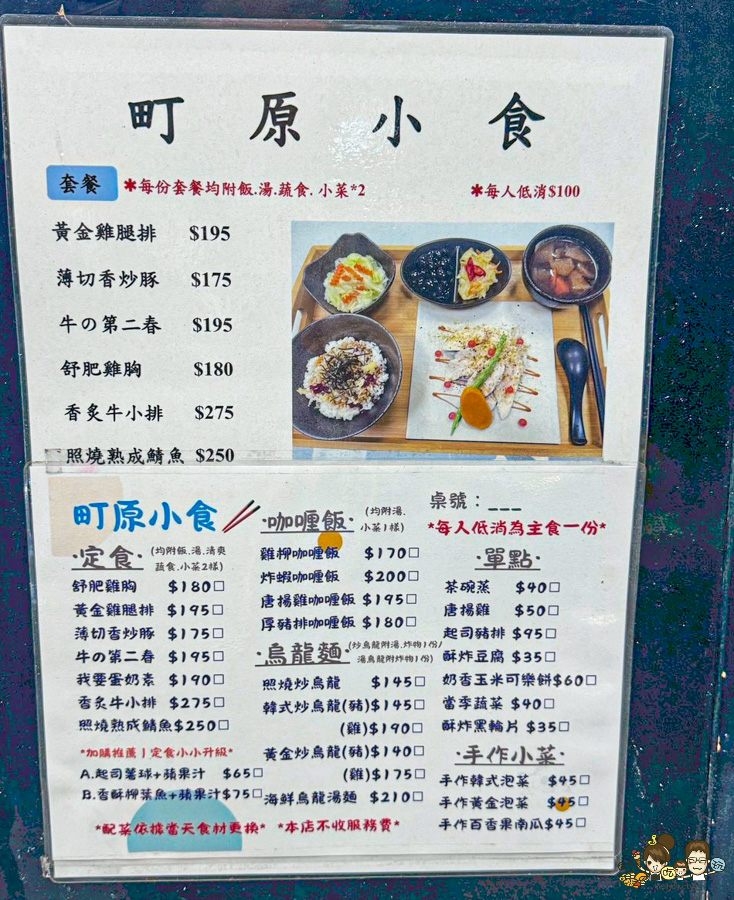 町原小食
套餐 *每份套餐均附飯.湯.蔬食.小菜*2 *每人低消$100
黃金雞腿排 $195
薄切香炒豚 $175
牛の第二春 $195
舒肥雞胸 $180
香炙牛小排 $275
照燒熟成鯖魚 $250
町原小食
·定食· (均附飯.湯.清爽
蔬食.小菜2樣)
舒肥雞胸 $180□
黃金雞腿排 $195□
薄切香炒豚 $175□
牛の第二春 $195□
我要蛋奶素 $190□
香炙牛小排 $275□
照燒熟成鯖魚$250□
*加購推薦|定食小小升級*
A.起司薯球+蘋果汁 $65□
B.香酥柳葉魚+蘋果汁$75□
·咖喱飯· (均附湯.
小菜1樣)
雞柳咖喱飯 $170□
炸蝦咖喱飯 $200□
唐揚雞咖喱飯 $195□
厚豬排咖喱飯 $180□
·烏龍麵· (炒烏龍附湯.炸物1份/
湯烏龍附炸物1份)
照燒炒烏龍 $145□
韓式炒烏龍(豬)$145□
(雞)$190□
黃金炒烏龍(豬)$140□
(雞)$175□
海鮮烏龍湯麵 $210□
桌號：___
*每人低消為主食一份*
·單點·
茶碗蒸 $40□
唐揚雞 $50□
起司豬排 $95□
酥炸豆腐 $35□
奶香玉米可樂餅$60□
當季蔬菜 $40□
酥炸黑輪片 $35□
·手作小菜·
手作韓式泡菜 $45□
手作黃金泡菜 $45□
手作百香果南瓜$45□
*配菜依據當天食材更換* *本店不收服務費*